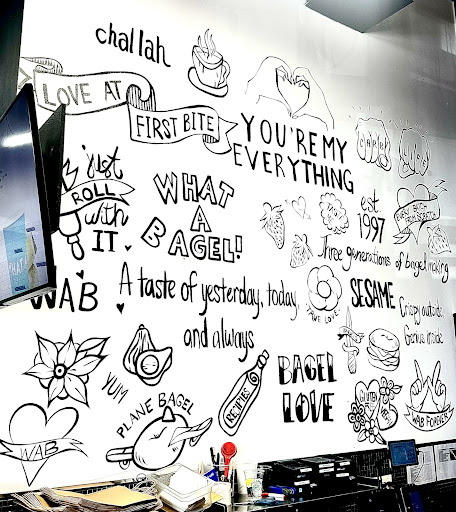 challah
LOVE AT
FIRST BITE
YOU'RE MY
EVERYTHING
just
ROLL
with
IT
WHAT
A
BAGEL!
est
1997
Three generations of bagel making
WAB
A taste of yesterday, today,
and always
SESAME
Crispy outside
Genius inside
YUM
PLANE BAGEL
BAGEL
LOVE
GLUTEN
WAB
WAB FOREVER